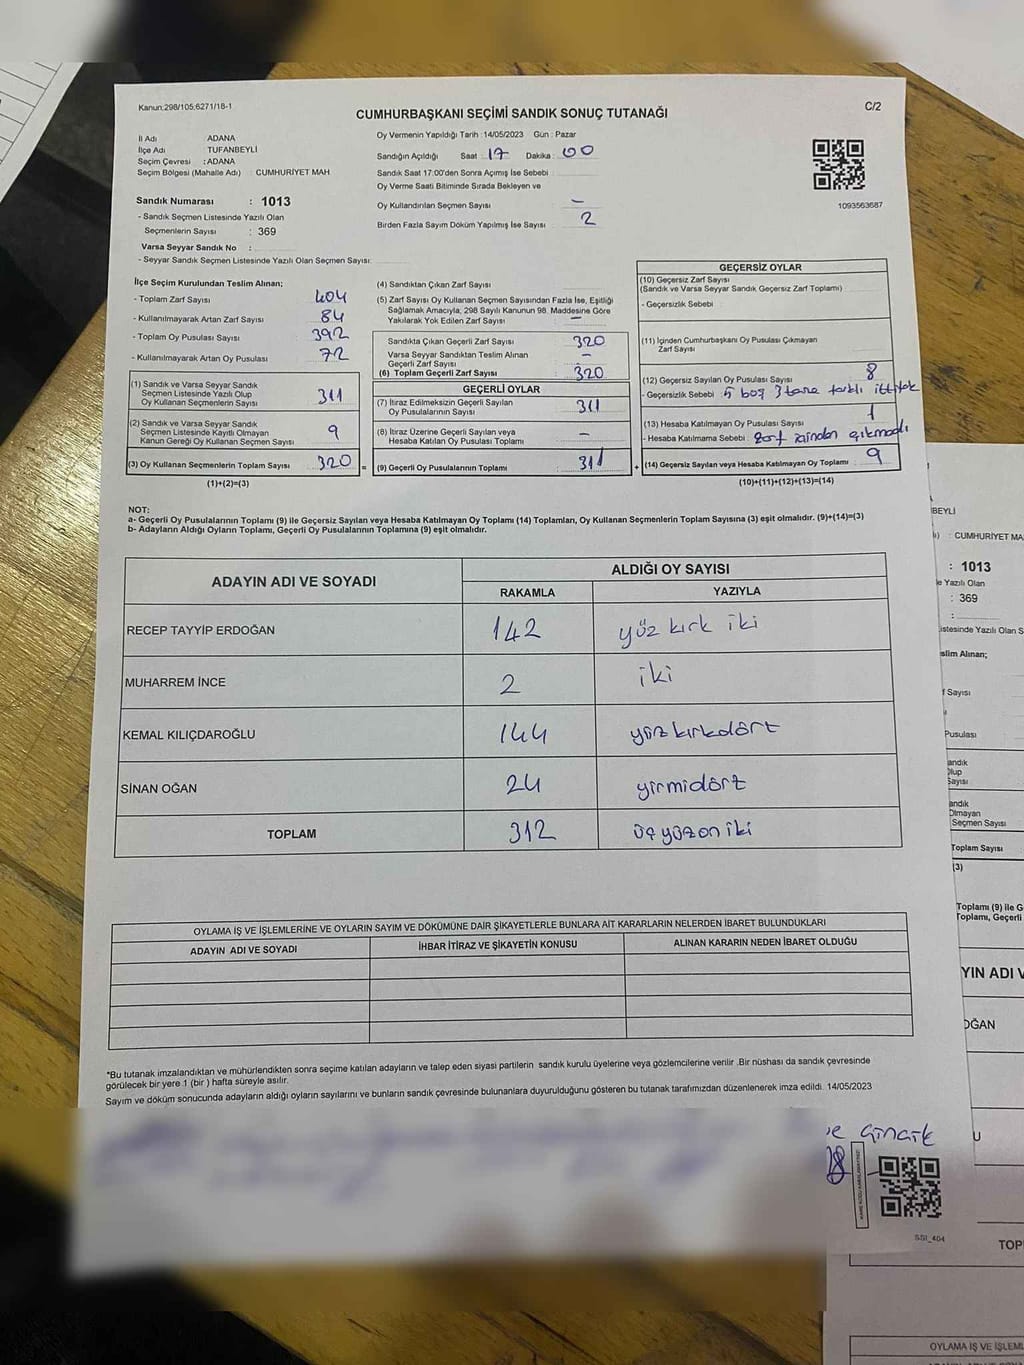 Kanun:298/105;6271/18-1
CUMHURBAŞKANI SEÇİMİ SANDIK SONUÇ TUTANAĞI
C/2
İl Adı : ADANA
İlçe Adı : TUFANBEYLİ
Seçim Çevresi : ADANA
Seçim Bölgesi (Mahalle Adı) : CUMHURİYET MAH
Oy Vermenin Yapıldığı Tarih :14/05/2023 Gün : Pazar
Sandığın Açıldığı Saat 17 Dakika : 00
Sandık Saat 17:00'den Sonra Açımış İse Sebebi :
Oy Verme Saati Bitiminde Sırada Bekleyen ve
Oy Kullandırılan Seçmen Sayısı –
Birden Fazla Sayım Döküm Yapılmış İse Sayısı : 2
1093563687
Sandık Numarası : 1013
- Sandık Seçmen Listesinde Yazılı Olan
Seçmenlerin Sayısı : 369
Varsa Seyyar Sandık No :
- Seyyar Sandık Seçmen Listesinde Yazılı Olan Seçmen Sayısı:
İlçe Seçim Kurulundan Teslim Alınan;
- Toplam Zarf Sayısı 404
- Kullanılmayarak Artan Zarf Sayısı 84
- Toplam Oy Pusulası Sayısı 392
- Kullanılmayarak Artan Oy Pusulası 72
(1) Sandık ve Varsa Seyyar Sandık
Seçmen Listesinde Yazılı Olup
Oy Kullanan Seçmenlerin Sayısı 311
(2) Sandık ve Varsa Seyyar Sandık
Seçmen Listesinde Kayıtlı Olmayan
Kanun Gereği Oy Kullanan Seçmen Sayısı 9
(3) Oy Kullanan Seçmenlerin Toplam Sayısı 320 =
(1)+(2)=(3)
(4) Sandıktan Çıkan Zarf Sayısı
(5) Zarf Sayısı Oy Kullanan Seçmen Sayısından Fazla İse, Eşitliği
Sağlamak Amacıyla; 298 Sayılı Kanunun 98. Maddesine Göre
Yakılarak Yok Edilen Zarf Sayısı : –
Sandıkta Çıkan Geçerli Zarf Sayısı 320
Varsa Seyyar Sandıktan Teslim Alınan
Geçerli Zarf Sayısı –
(6) Toplam Geçerli Zarf Sayısı 320
GEÇERLİ OYLAR
(7) İtiraz Edilmeksizin Geçerli Sayılan
Oy Pusulalarının Sayısı 311
(8) İtiraz Üzerine Geçerli Sayılan veya
Hesaba Katılan Oy Pusulası Toplamı –
(9) Geçerli Oy Pusulalarının Toplamı 311 +
GEÇERSİZ OYLAR
(10) Geçersiz Zarf Sayısı
(Sandık ve Varsa Seyyar Sandık Geçersiz Zarf Toplamı)
- Geçersizlik Sebebi :
(11) İçinden Cumhurbaşkanı Oy Pusulası Çıkmayan
Zarf Sayısı
(12) Geçersiz Sayılan Oy Pusulası Sayısı 8
- Geçersizlik Sebebi : 5 boş 3 tane farklı ittifak
(13) Hesaba Katılmayan Oy Pusulası Sayısı 1
- Hesaba Katılmama Sebebi : çıkmadı
(14) Geçersiz Sayılan veya Hesaba Katılmayan Oy Toplamı 9
(10)+(11)+(12)+(13)=(14)
NOT:
a- Geçerli Oy Pusulalarının Toplamı (9) ile Geçersiz Sayılan veya Hesaba Katılmayan Oy Toplamı (14) Toplamları, Oy Kullanan Seçmenlerin Toplam Sayısına (3) eşit olmalıdır. (9)+(14)=(3)
b- Adayların Aldığı Oyların Toplamı, Geçerli Oy Pusulalarının Toplamına (9) eşit olmalıdır.
ADAYIN ADI VE SOYADI ALDIĞI OY SAYISI
RAKAMLA YAZIYLA
RECEP TAYYİP ERDOĞAN 142 yüz kırk iki
MUHARREM İNCE 2 iki
KEMAL KILIÇDAROĞLU 144 yüzkırkdört
SİNAN OĞAN 24 yirmidört
TOPLAM 312 üçyüzon iki
OYLAMA İŞ VE İŞLEMLERİNE VE OYLARIN SAYIM VE DÖKÜMÜNE DAİR ŞİKAYETLERLE BUNLARA AİT KARARLARIN NELERDEN İBARET BULUNDUKLARI
ADAYIN ADI VE SOYADI İHBAR İTİRAZ VE ŞİKAYETİN KONUSU ALINAN KARARIN NEDEN İBARET OLDUĞU
*Bu tutanak imzalandıktan ve mühürlendikten sonra seçime katılan adayların ve talep eden siyasi partilerin sandık kurulu üyelerine veya gözlemcilerine verilir .Bir nüshası da sandık çevresinde
görülecek bir yere 1 (bir ) hafta süreyle asılır.
Sayım ve döküm sonucunda adayların aldığı oyların sayılarını ve bunların sandık çevresinde bulunanlara duyurulduğunu gösteren bu tutanak tarafımızdan düzenlenerek imza edildi. 14/05/2023
SSI_404
BEYLİ
: CUMHURİYET MA
: 1013
e Yazılı Olan
: 369
:
istesinde Yazılı Olan S
slim Alınan;
f Sayısı
Pusulası
andık
Olup
Sayısı
andık
Olmayan
Seçmen Sayısı
Toplam Sayısı
(3)
Toplamı (9) ile G
Toplamı, Geçerli
YIN ADI V
OĞAN
U
TOP
OYLAMA İŞ VE İŞLEM